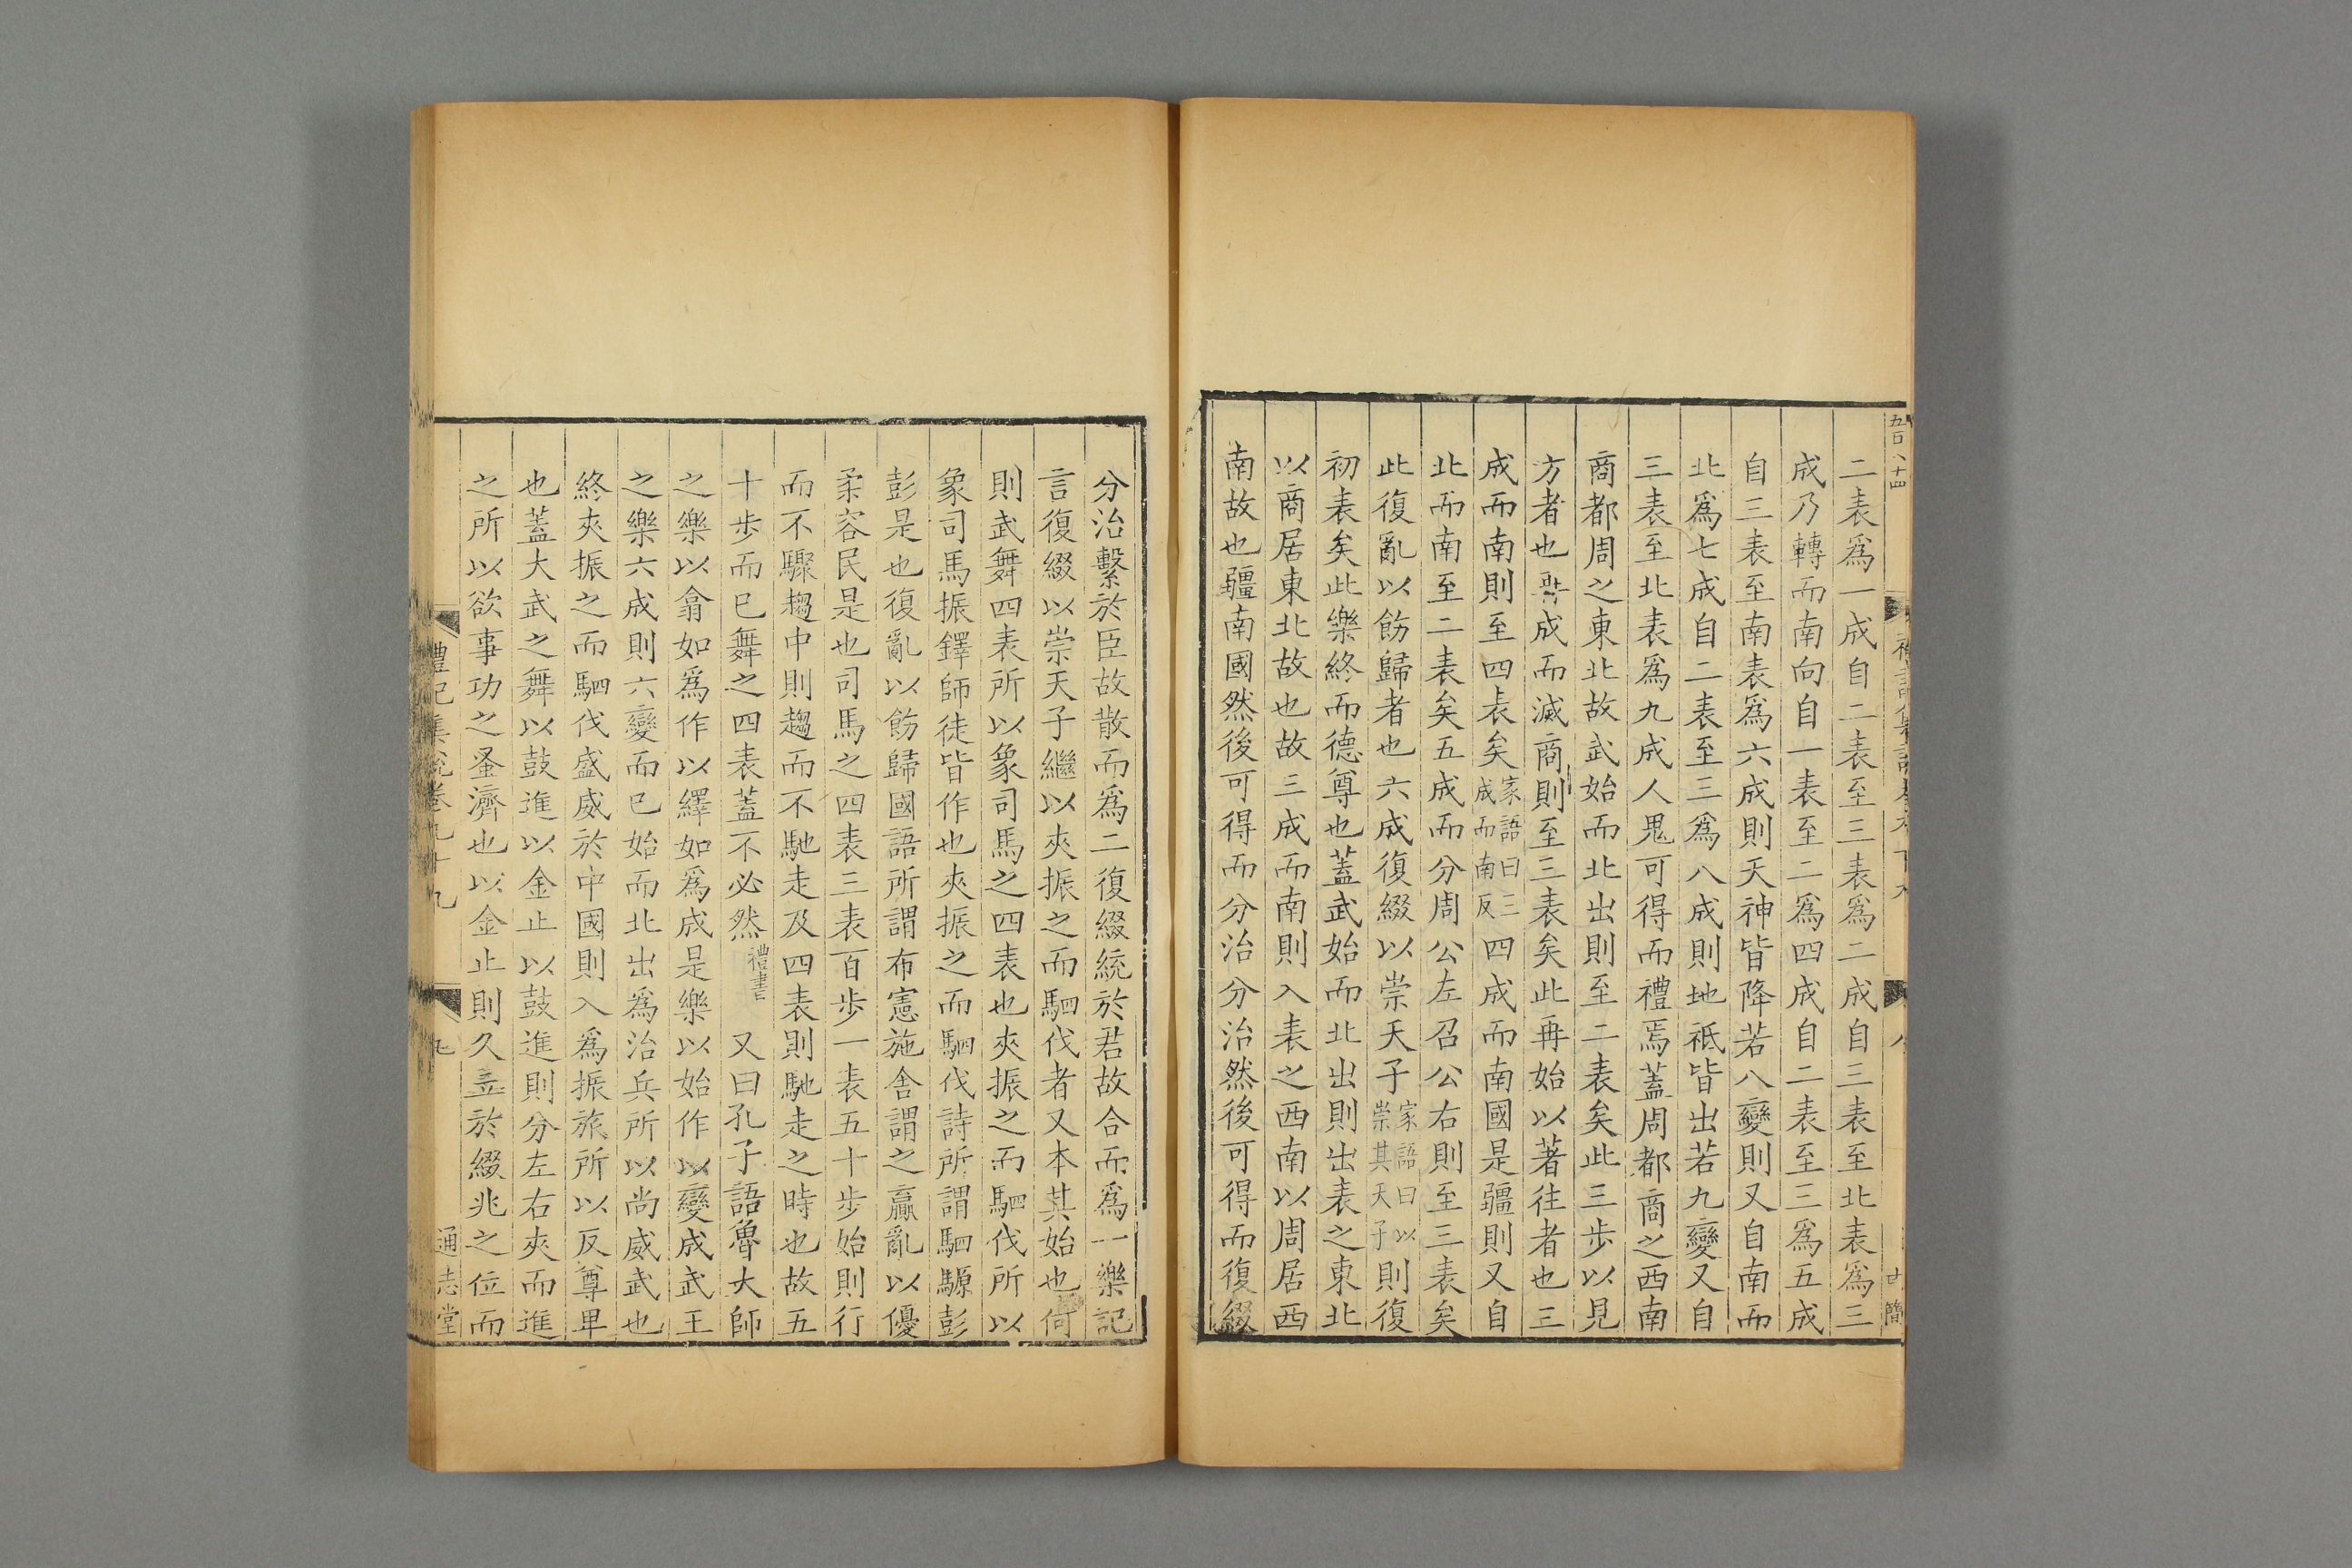 二表爲一成自二表至三表爲二成自三表至北表爲三
成乃轉而南向自一表至二爲四成自二表至三爲五成
自三表至南表爲六成則天神皆降若八變則又自南而
北爲七成自二表至三爲八成則地祇皆出若九變又自
三表至北表爲九成人鬼可得而禮焉蓋周都商之西南
商都周之東北故武始而北出則至二表矣此三步以見
方者也再成而滅商則至三表矣此再始以著往者也三
成而南則至四表矣家語曰三成而南反四成而南國是疆則又自
北而南至二表矣五成而分周公左召公右則至三表矣
此復亂以飭歸者也六成復綴以崇天子家語曰以崇其天子則復
初表矣此樂終而德尊也蓋武始而北出則出表之東北
以商居東北故也故三成而南則入表之西南以周居西
南故也疆南國然後可得而分治分治然後可得而復綴
分治繫於臣故散而爲二復綴統於君故合而爲一樂記
言復綴以崇天子繼以夾振之而駟伐者又本其始也何
則武舞四表所以象司馬之四表也夾振之而駟伐所以
象司馬振鐸師徒皆作也夾振之而駟伐詩所謂駟騵彭
彭是也復亂以飭歸國語所謂布憲施舍謂之嬴亂以優
柔容民是也司馬之四表三表百步一表五十步始則行
而不驟趨中則趨而不馳走及四表則馳走之時也故五
十步而已舞之四表蓋不必然禮書 又曰孔子語魯大師
之樂以翕如爲作以繹如爲成是樂以始作以變成武王
之樂六成則六變而已始而北出爲治兵所以尚威武也
終夾振之而駟伐盛威於中國則入爲振旅所以反尊卑
也蓋大武之舞以鼓進以金止以鼓進則分左右夾而進
之所以欲事功之蚤濟也以金止則久立於綴兆之位而
禮記集說卷九十九
九
通志堂